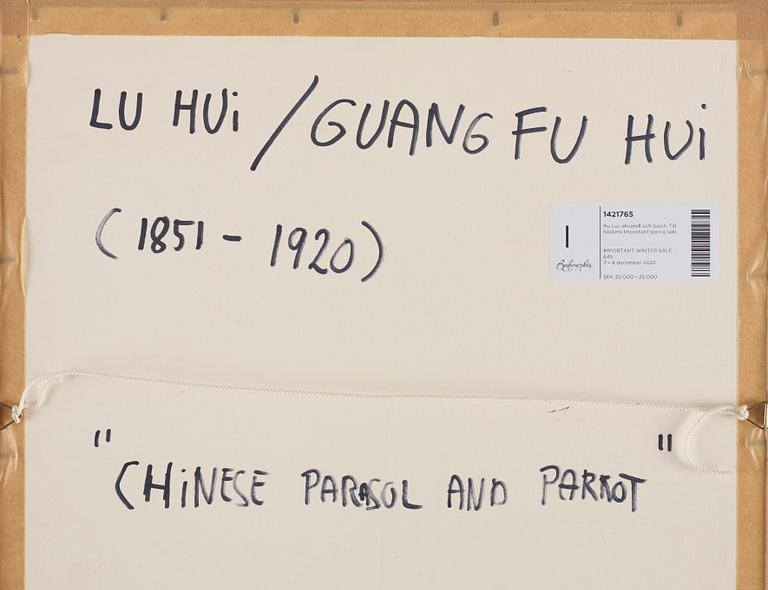 LU HUi / GUANG FU HUi
(1851 - 1920)
1421765
Hu Lui, akvarell och tusch. Till
höstens Important spring sale.
IMPORTANT WINTER SALE
649
7 - 9 december 2022
SEK 30 000 - 35 000
Bukowskis
"CHiNESE PARASOL AND PARROT"